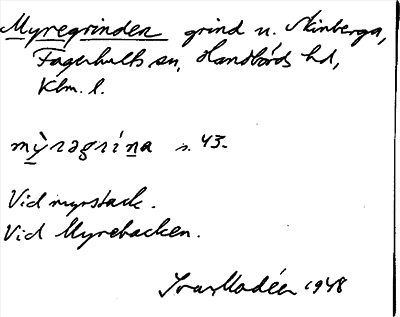 Myregrinden grind u. Skinberga,
Fagerhults sn, Handbörds hd,
Klm. l.
mỳrəgrína s. 43.
Vid myrstack.
Vid Myrebacken.
Ivar Modéer 1948